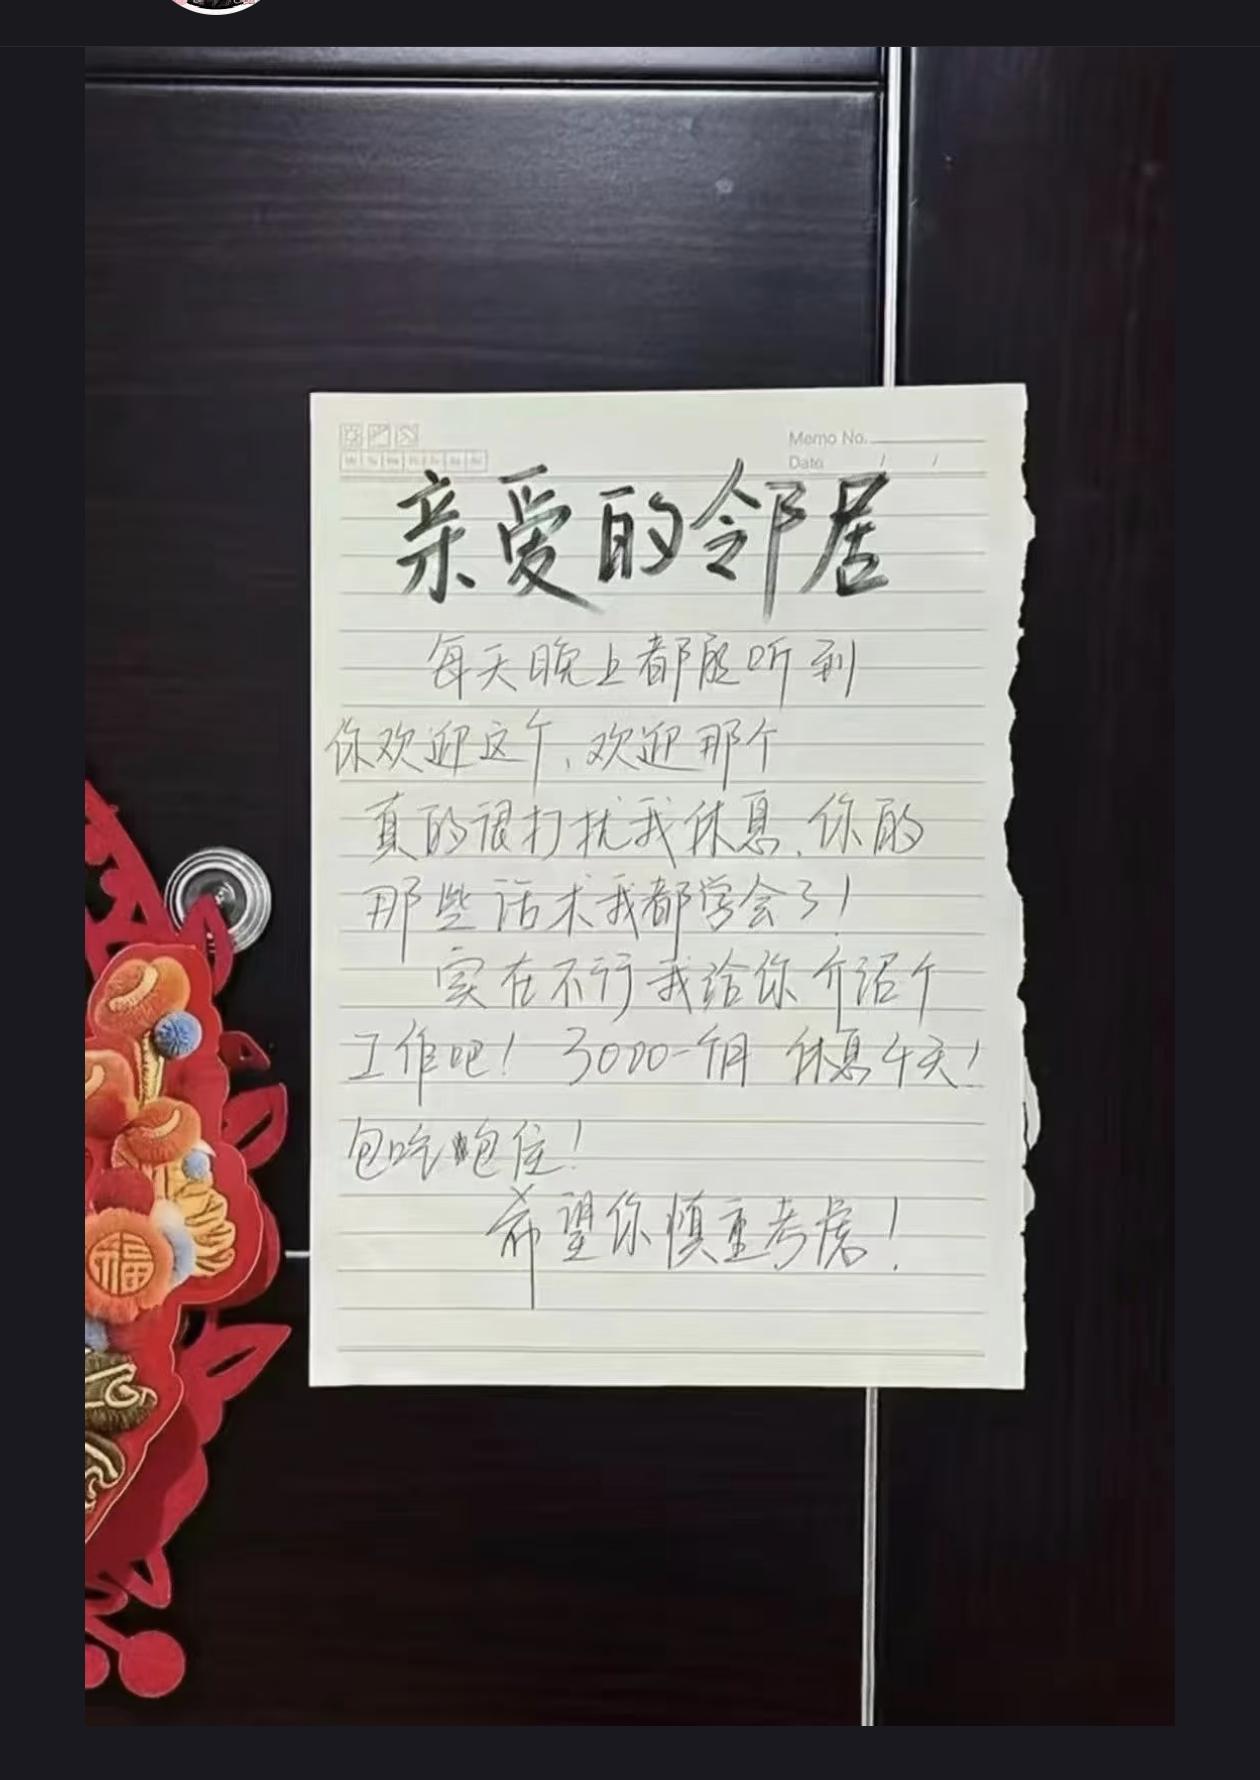 Memo No.
Date / /
亲爱的邻居
每天晚上都能听到
你欢迎这个、欢迎那个
真的很打扰我休息、你的
那些话术我都学会了!
实在不行我给你介绍个
工作吧! 3000一个月 休息4天!
包吃包住!
希望你慎重考虑!
福